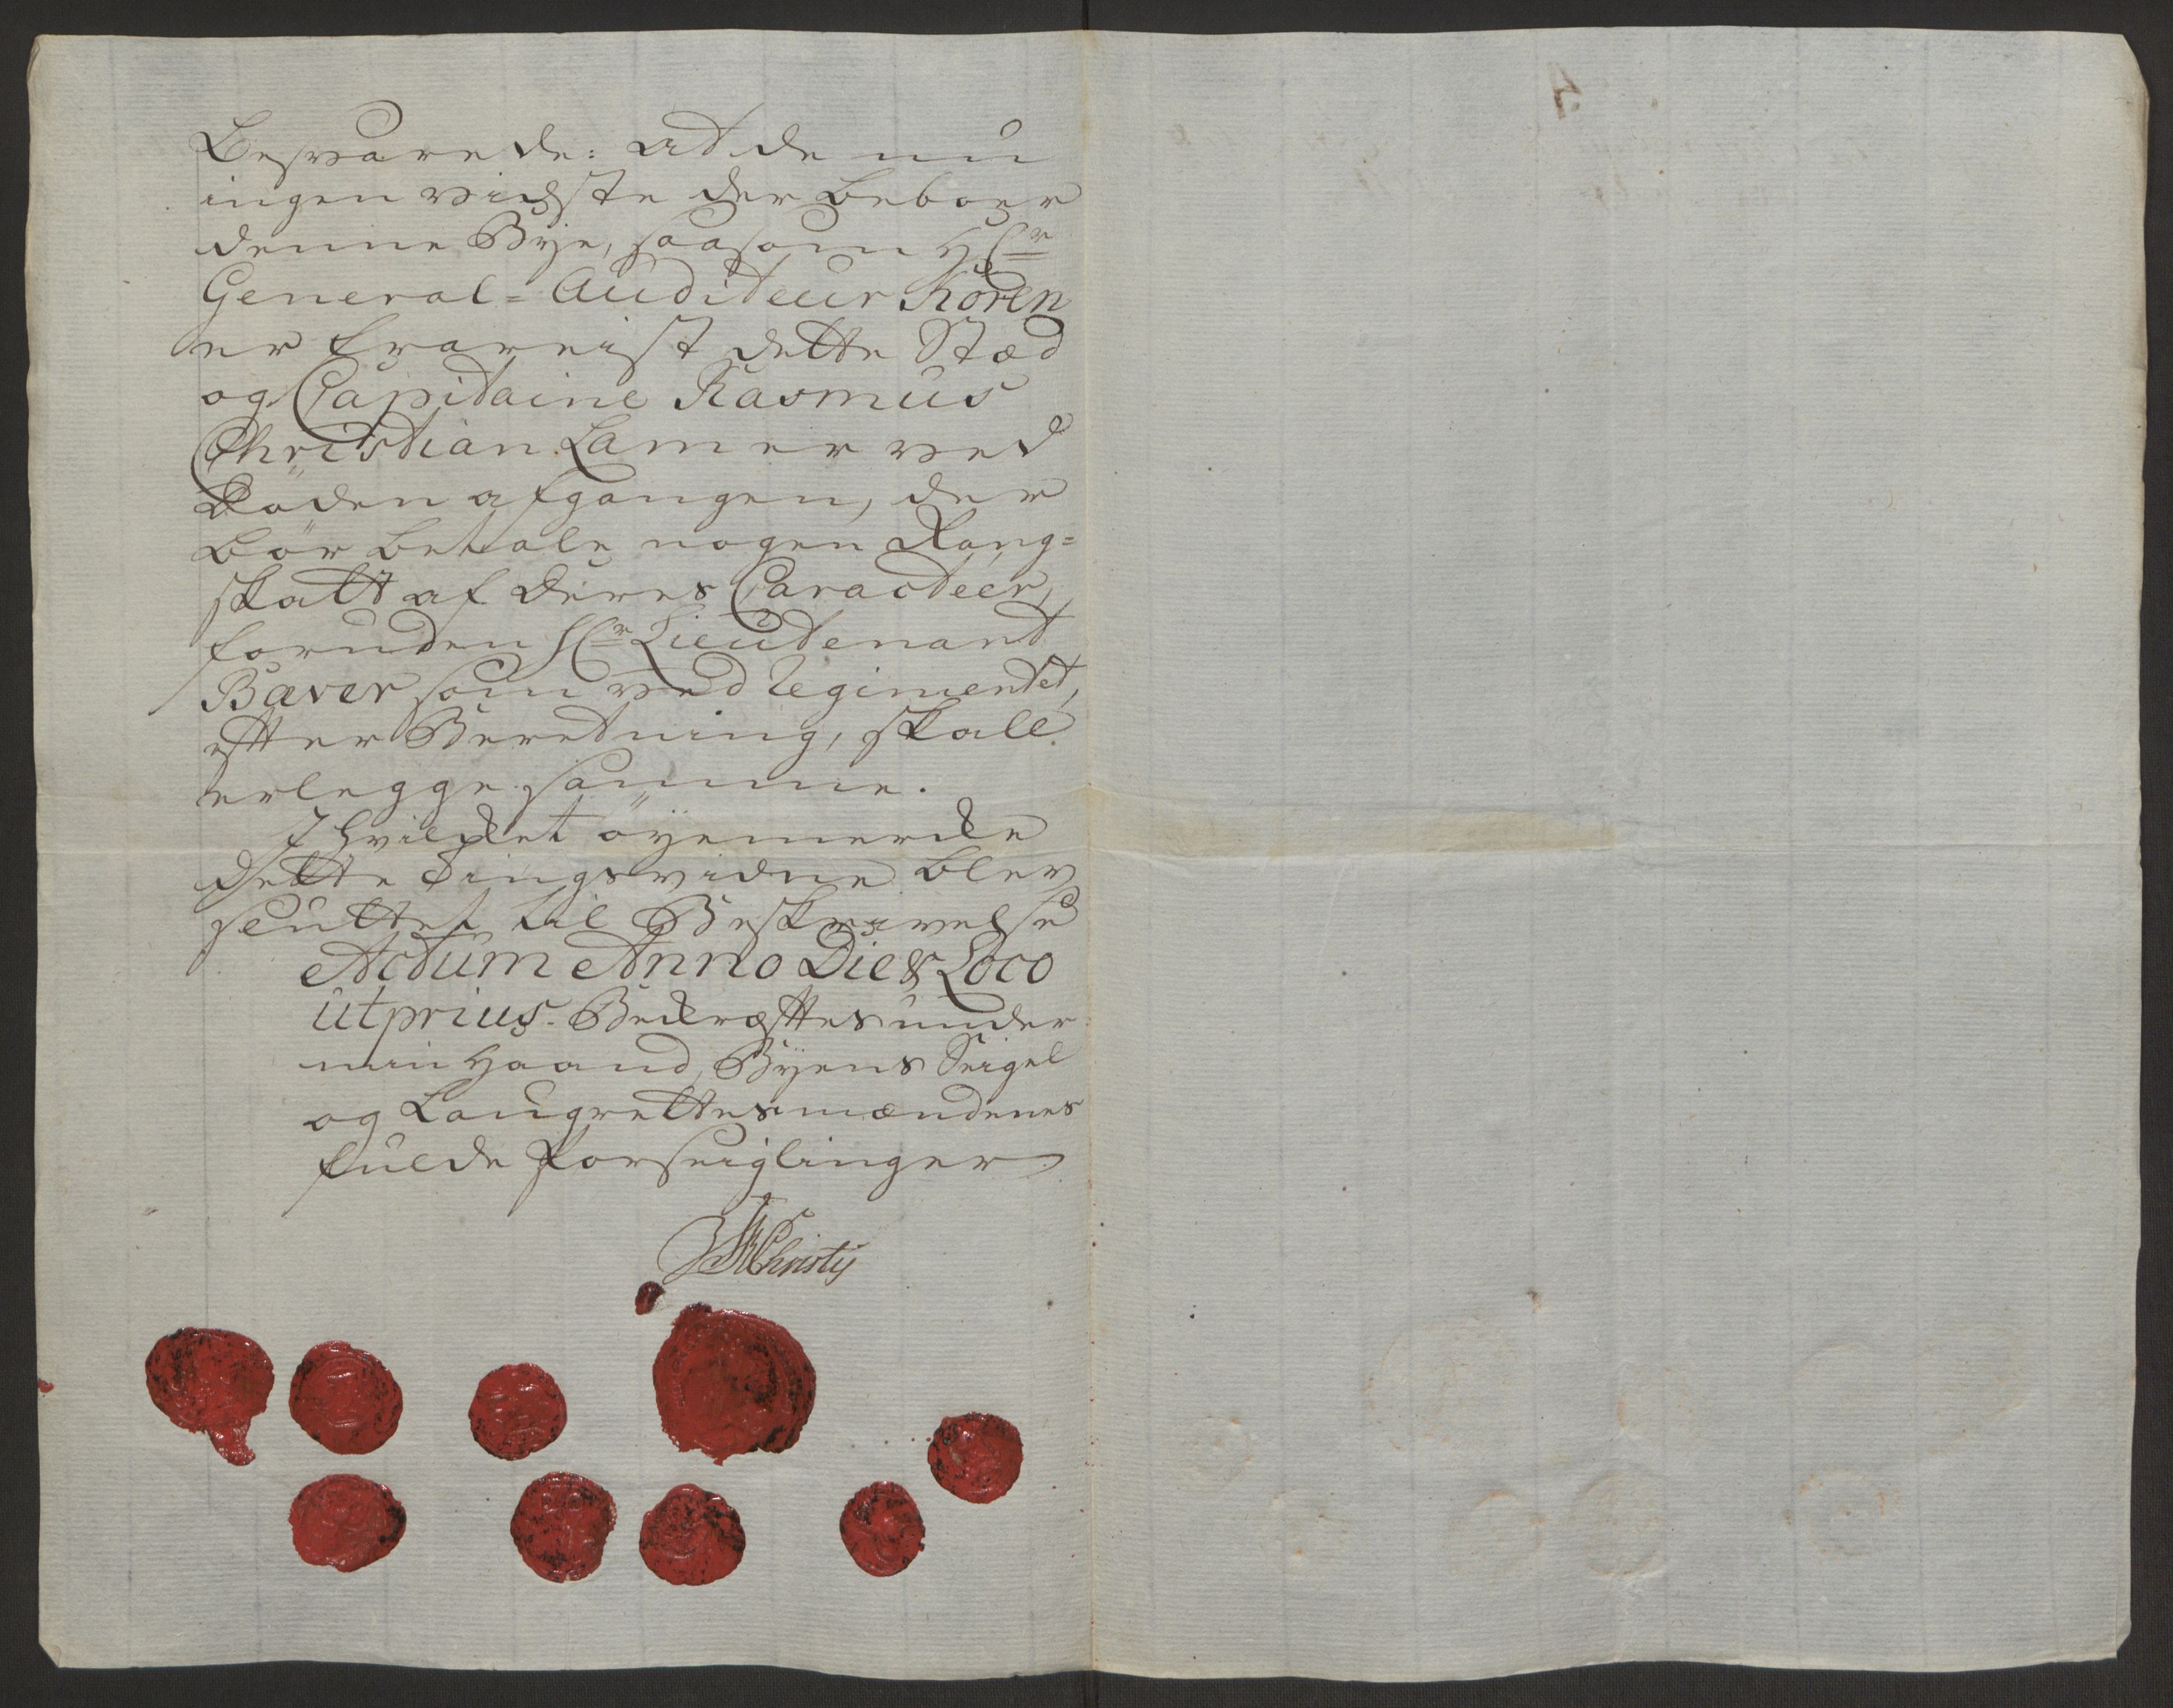 Besvarede: at de nu
ingen vidste der beboer
denne Bye, saasom Hr
General=Auditeur Koren
er frareist dette Stæd
og Capitaine Rasmus
Christian Lamer ved
Døden afgangen, der
bör betale nogen Rang=
skatt af deres Caracteer,
foruden Hr Lieutenant
Bæver som ved Regimentet,
efter Beretning, skall
erlegge samme.
I hvilket öyemercke
dette Tingsvidne blev
sluttet til Beskrivelse
Actum Anno Die & Loco
ut prius. Bekræfttes under
min Haand, Byens Seigel
og Laugrettesmændenes
fulde Forseiglinger
Christy